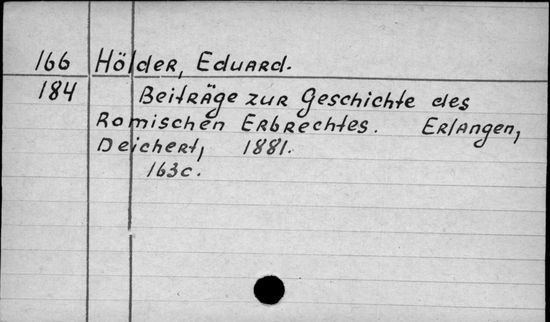 166 Hölder, Eduard.
184 Beiträge zur Geschichte des
Romischen Erbrechtes. Erlangen,
Deichert, 1881.
163c.